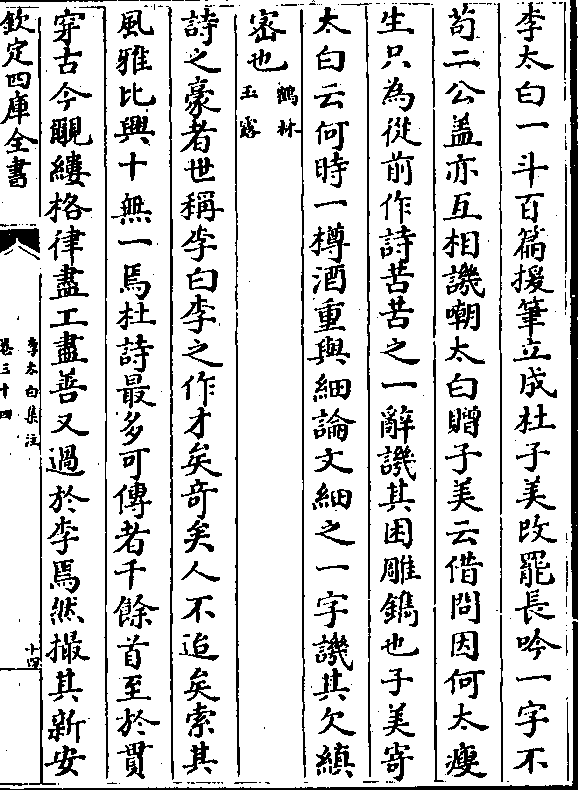 李太白一斗百篇援筆立成杜子美改罷長吟一字不
苟二公盖亦互相譏嘲太白贈子美云借問因何太瘦
生只為從前作詩苦苦之一辭譏其困雕鐫也子美寄
太白云何時一樽酒重與細論文細之一字譏其欠縝
宻也鶴林玉露
詩之豪者世稱李白李之作才矣竒矣人不迨矣索其
風雅比興十無一焉杜詩最多可傳者千餘首至於貫
穿古今覼縷格律盡工盡善又過於李焉然撮其新安
欽定四庫全書
李太白集注
卷三十四
十四